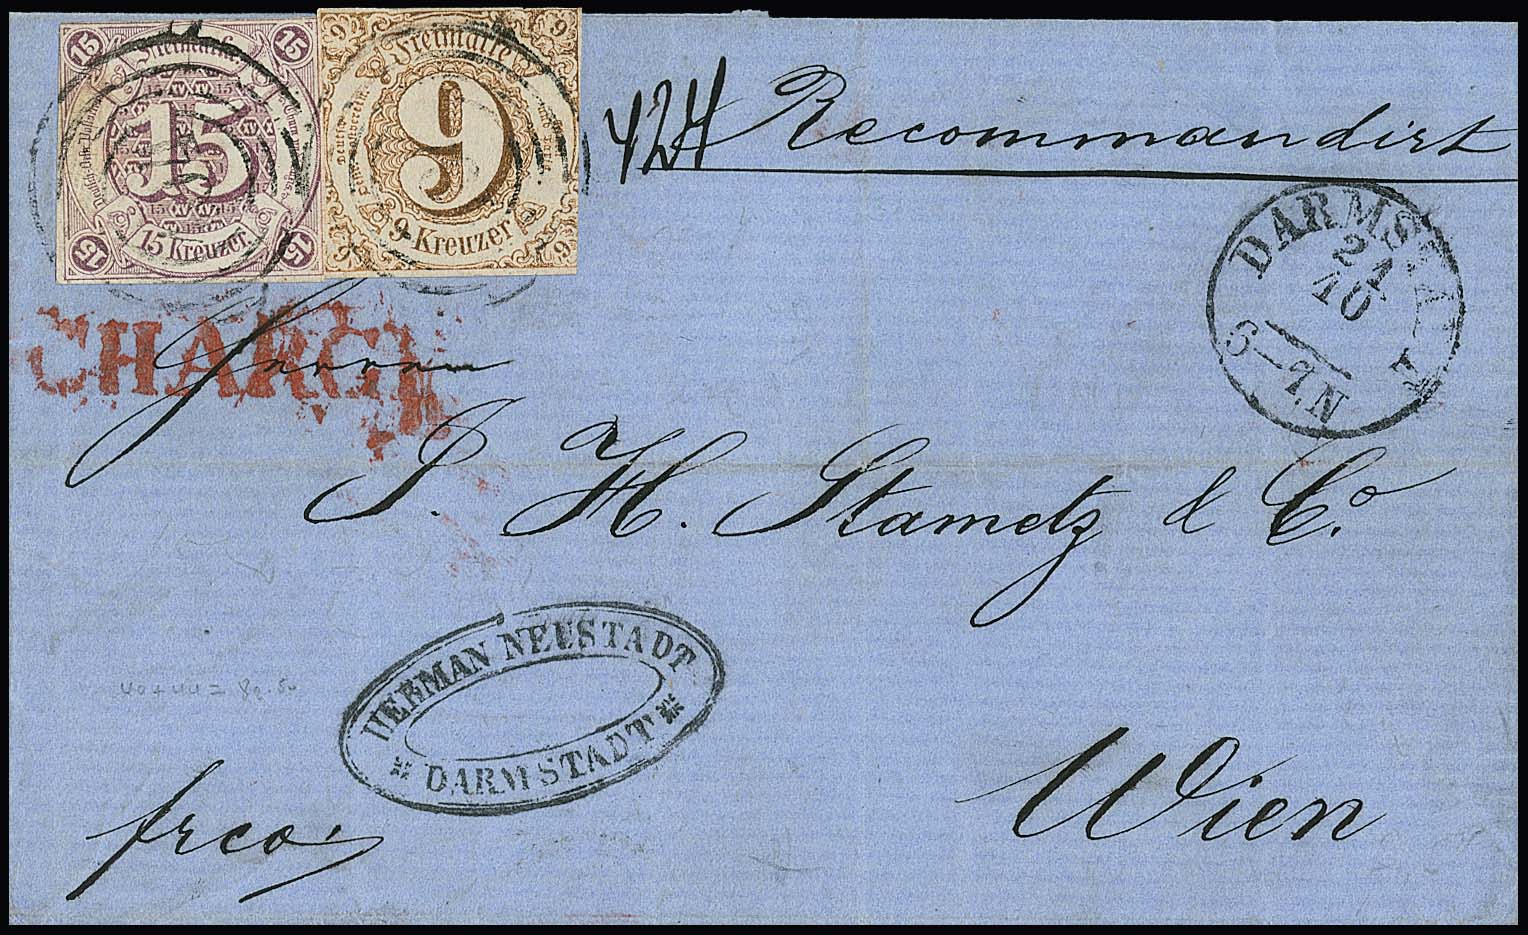 15 15
Freimarke.
15
15 Kreuzer.
15 15
9 9
Freimarke
9
9 Kreuzer
9 9
424 Recommandirt
DARMSTA
21
10
6-7N
CHARG
Herren
J. H. Stametz & Co.
HERMAN NEUSTADT
* DARMSTADT *
40+44=
frco.
Wien